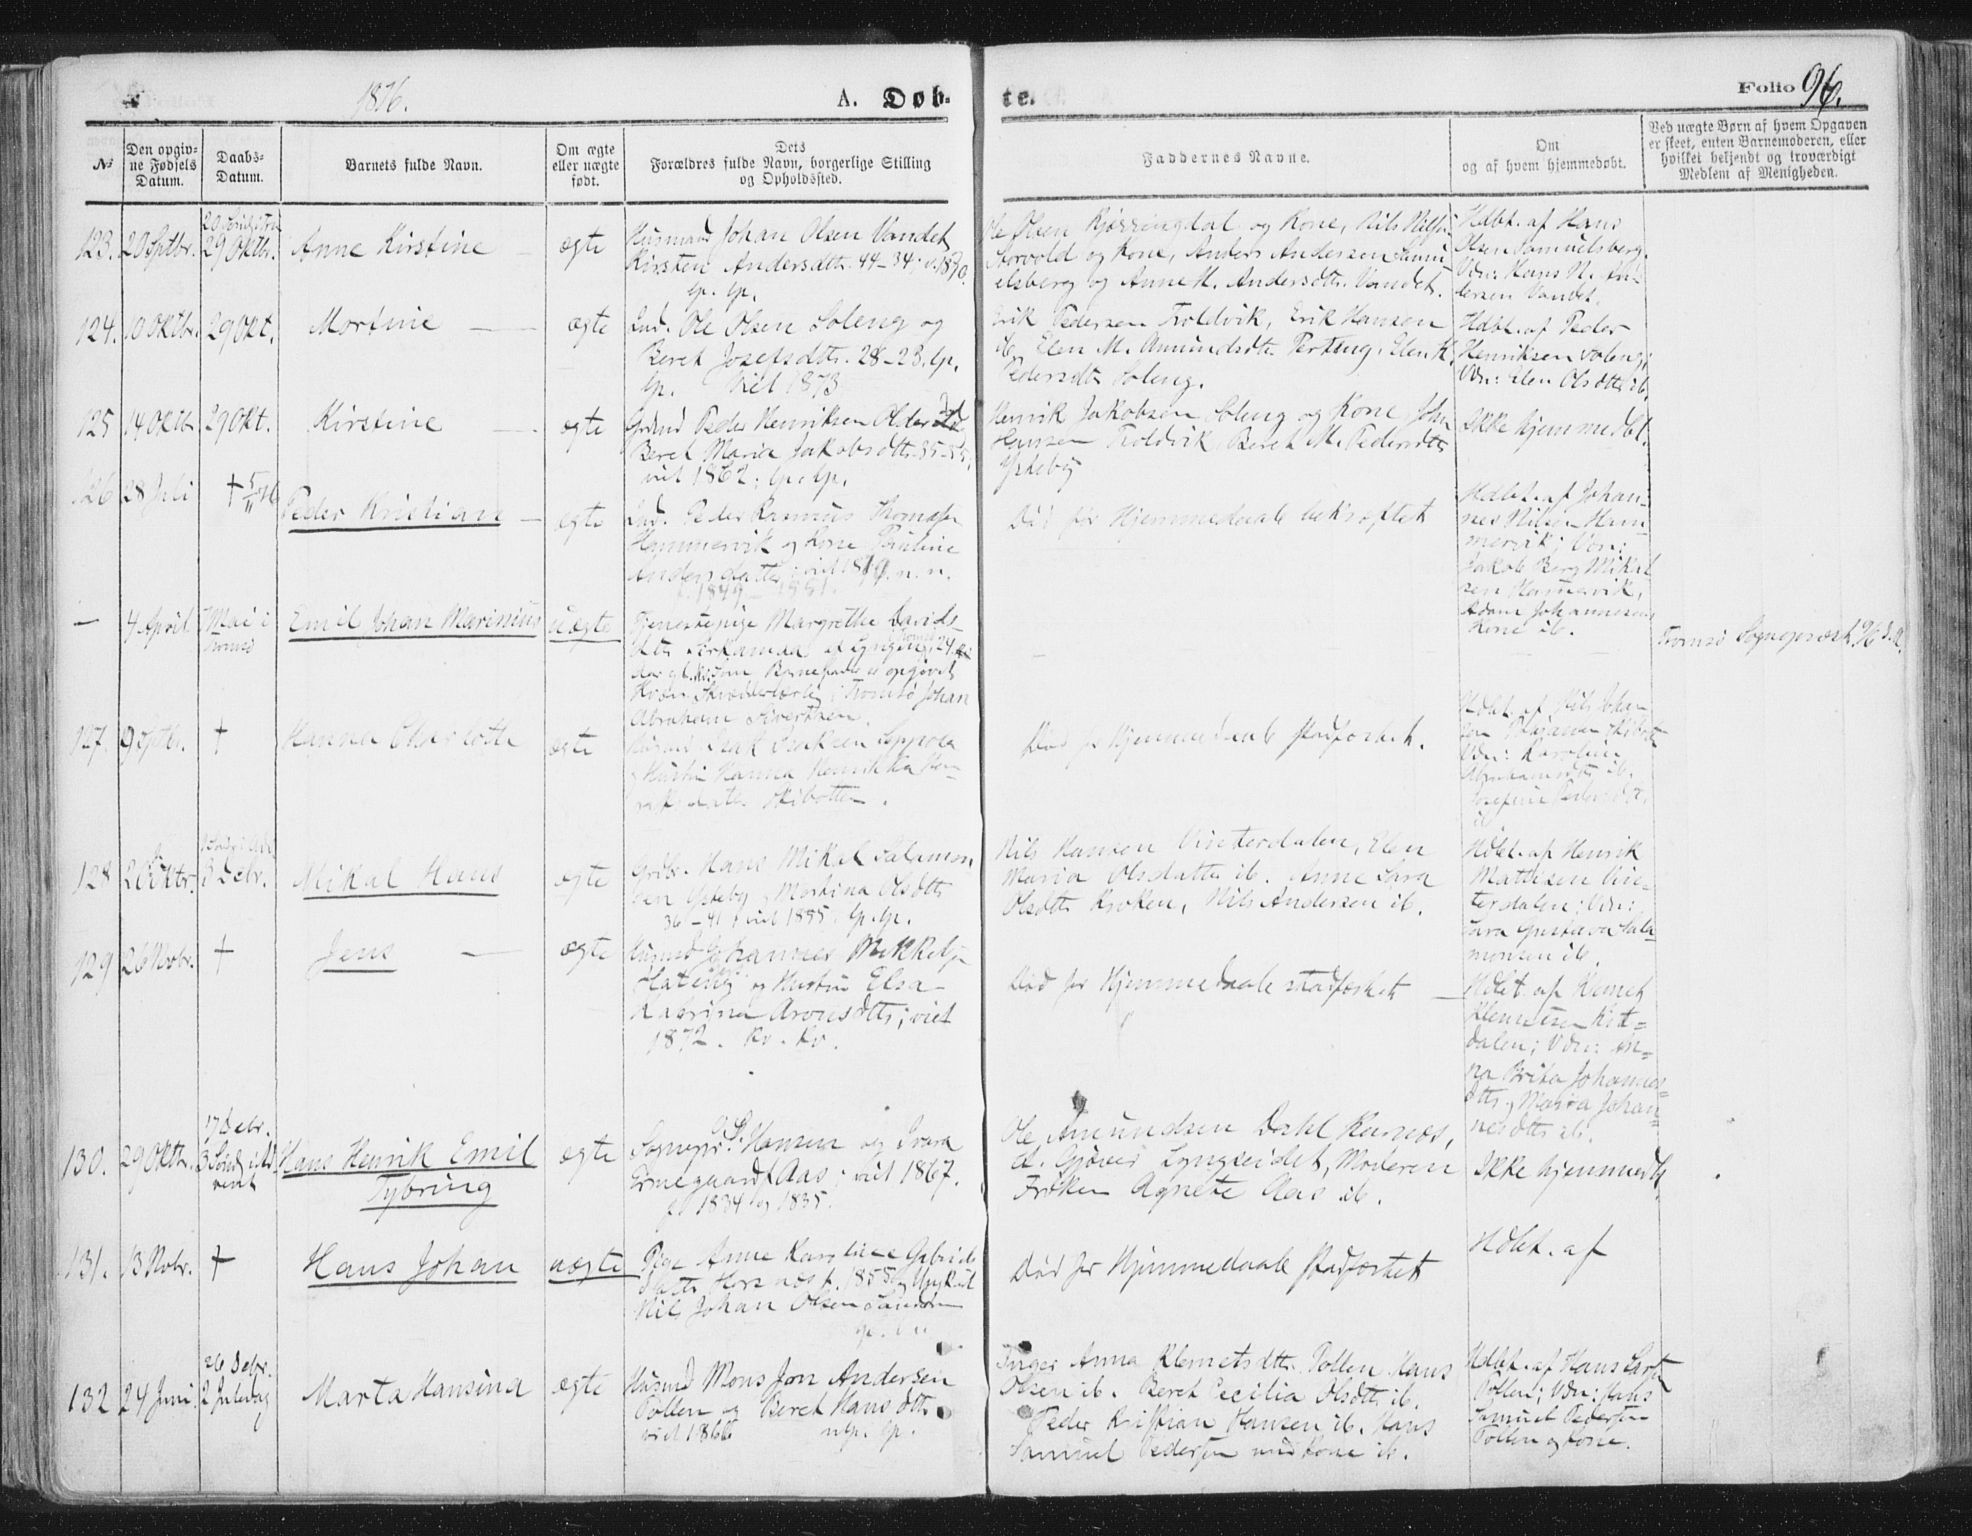 1876.
A. Døb-
te.
Folio 96.
No
Den opgiv-
ne Fødsels
Datum.
Daabs-
Datum.
Barnets fulde Navn.
Om ægte
eller uægte
født.
Dets
Forældres fulde Navn, borgerlige Stilling
og Opholdssted.
Faddernes Navne.
Om
og af hvem hjemmedøbt.
Ved uægte Børn af hvem Opgaven
er skeet, enten Barnemoderen, eller
hvilket bekjendt og troværdigt
Medlem af Menigheden.
123. 20 Sptbr. 29 Oktbr. Anne Kirstine ægte
Husmand Johan Olsen Vandet
Kirsten Andersdtr. 44-34; v. 1870.
lp. lp.
Ole Olsen Kjossingdal og Kone, Nils Nilsen
Storvold og Kone, Anders Andersen Samu-
elsberg og Anne M. Andersdtr. Vandet.
Hdbt. af Hans
Olsen Samuelsberg.
Vdn: Hans N. An-
dersen Vandet.
124. 10 Oktbr. 29 Okt. Mortine ægte
Ind. Ole Olsen Soleng og
Beret Josefsdtr. 28-23. lp.
lp. Viet 1873
Erik Pedersen Troldvik, Erik Hansen
ib, Elen M. Amundsdtr. Elen K.
Pedersdtr Soleng.
Hdbt. af Peder
Henriksen Soleng;
Vdn: Elen Olsdtr ib.
125 14 Oktbr 29 Okt. Kirstine ægte
Grdmd Peder Henriksen
Beret Maria Jakobsdtr. 35-35;
viet 1862. lp. lp.
Henrik Jakobsen Soleng og Kone, John
Hansen Troldvik, Beret M. Pedersdtr
Ysteby
Ikke hjemmedbt.
126 28 Juli † 5/11 76 Peder Kristian ægte
Ind. Peder Rasmus Thomasen
Hammervik og Kone Pauline
Andersdatter; n. n.
f. 1849 - 1851.
Død før Hjemmedaab bekræftet
Hdbt. af Johan-
nes Nilsen Ham-
mervik; Vdn:
Jakob Berg Mikal
sen Hamnvik,
Adam Johannesens
Kone ib.
— 4 April Mai i
Tromsø
Emil Johan Marinius uægte
Tjenestepige Margrethe Davids-
dtr. af Lyngen, 24
Aar gl. Som Barnefader er opgivet
i Tromsø Johan
Abraham Sivertsen.
Tromsø Sogneprest
127 9 Sptbr. † Hanna Charlotte ægte
Husmd Isak Isaksen
Hustru Hanna Henrikka
Skibotten.
Død før Hjemmedaab stadfæstet.
Hdbt. af Nils Johan
Vdn: Karoline
Abrahamsdtr ib.
Josefine Pedersdtr.
ib
128 20 Oktbr. 3 Debr. Mikal Hans ægte
Grdbr. Hans Mikal Salamon
sen Ysteby, Martina Olsdtr
36-41; viet 1885. lp. lp.
Nils Hansen Vinterdalen, Elen
Maria Olsdatter ib. Anne Sara
Olsdtr Kroken, Nils Andersen ib.
Hdbt. af Henrik
Mathisen Vin-
terdalen; Vdn:
Sara Gustava Sala-
monsen ib.
129 26 Novbr. † Jens ægte
Husmd Johannes Mikkelsen
Hateng og Hustru Elsa
Katrina Aronsdtr; viet
1872. Kv. Kv.
Død før Hjemmedaab stadfæstet
Hdbt. af Klemet
Klemetsen Kit-
dalen; Vdn: An-
na Brita Johannes-
dtr, Maria Johan-
nesdtr ib.
130. 29 Oktbr. 17 Debr.
3 Sønd. i Ad-
vent
Hans Henrik Emil
Tybring
ægte
Sognepr. O. S. Hansen og Ivara
Ermegaard f. Aas; viet 1867.
f. 1834 og 1835.
Ole Amundsen Dahl Karnæs,
Gjøver Lyngseidet, Moderen
Frøken Agnete Aas ib.
Ikke hjemmedbt.
131. 13 Novbr. † Hans Johan uægte
Pige Anne Karoline Gabriels
datter Hornnæs f. 1855 og Ungkarl
Nils Johan Olsen
Død før Hjemmedaab stadfæstet
Hdbt. af
132 24 Juni 26 Debr.
2 Juledag
Marta Hansina ægte
Husmd Mons Jon Andersen
Pollen og Beret Hansdtr
viet 1866 nlp. lp.
Inger Anna Klemetsdtr. Pollen, Hans
Olsen ib. Beret Cecilia Olsdtr ib.
Peder Kristian Hansen ib. Hans
Samuel Pedersen med Kone ib.
Hdbt. af Hans Lars
Pollen; Vdn: Hans
Samuel Pedersen
Pollen og Kone.